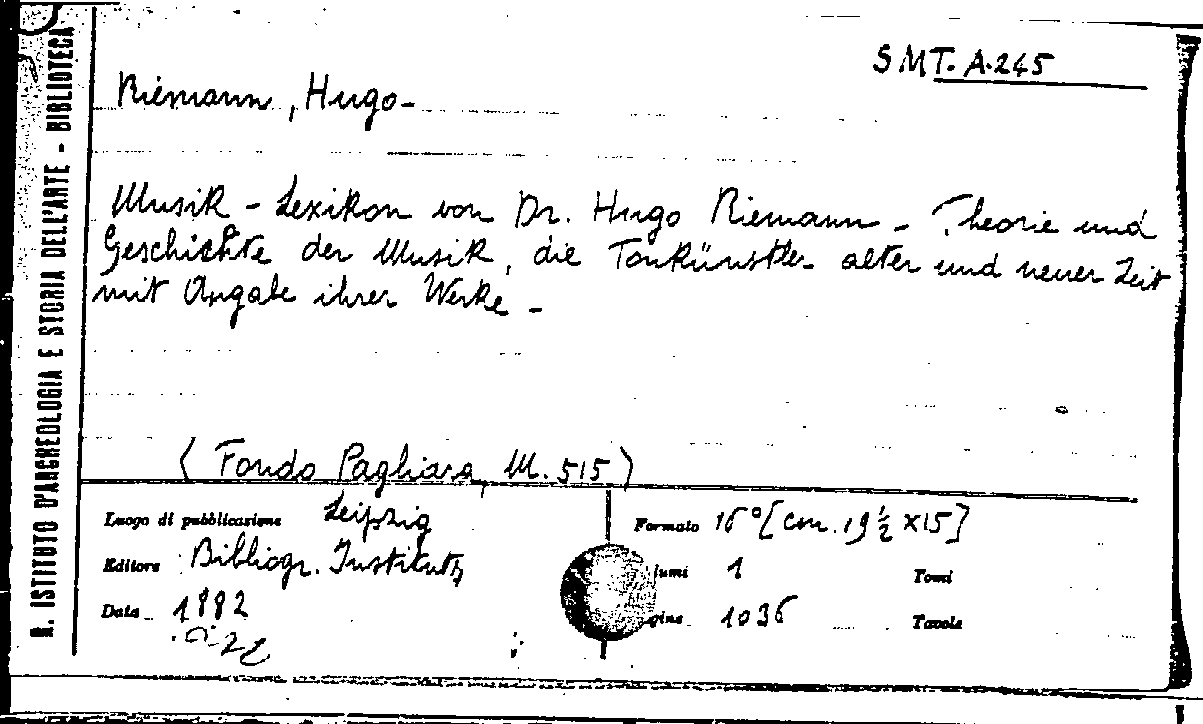 R. ISTITUTO D'ARCHEOLOGIA E STORIA DELL'ARTE - BIBLIOTECA
SMT. A.245
Riemann, Hugo-
Musik - Lexikon von Dr. Hugo Riemann - Theorie und
Geschichte der Musik, die Tonkünstler alter und neuer Zeit
mit Angabe ihrer Werke -
(Fondo Pagliara, M. 515)
Luogo di pubblicazione Leipzig
Editore Bibliogr. Instituts
Data 1882
Formato 16° [cm. 19 ½ x 15]
lumi 1 Tomi
gine 1036 Tavole